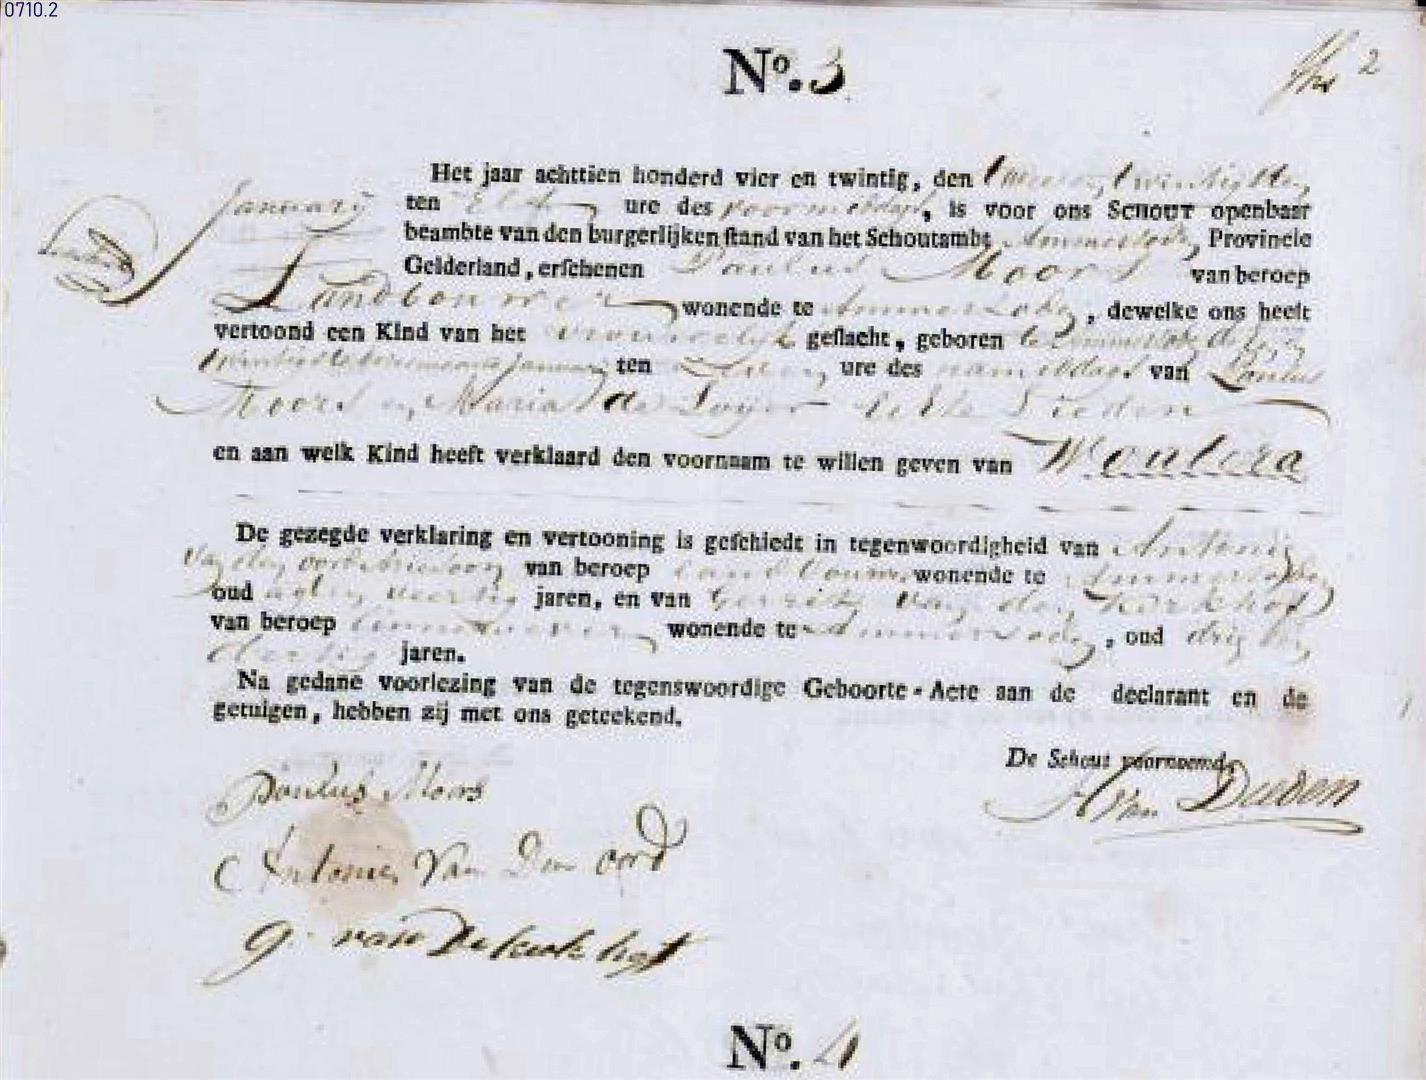 0710.2
No. 3
2
Het jaar achttien honderd vier en twintig, den
January ten Elf ure des voormiddags, is voor ons SCHOUT openbaar
beambte van den burgerlijken stand van het Schoutambt Ammersoden, Provincie
Gelderland, erschenen Paulus Moors van beroep
Landbouwer wonende te Ammersoden, dewelke ons heeft
vertoond een Kind van het vrouwelijk geslacht, geboren te Ammersoden den
January ten ure des namiddags van Paulus
Moors en Maria de
en aan welk Kind heeft verklaard den voornaam te willen geven van Woutera
De gezegde verklaring en vertooning is geschiedt in tegenwoordigheid van Antonie
van den oord van beroep landbouwer wonende te Ammersoden
oud veertig jaren, en van Gerrit van den Kerkhof
van beroep wonende te Ammersoden, oud drie en
dertig jaren.
Na gedane voorlezing van de tegenswoordige Geboorte-Acte aan de declarant en de
getuigen, hebben zij met ons geteekend.
De Schout voornoemd,
Paulus Moors
Antonie Van Den oord
G. van De kerkhof
No. 4